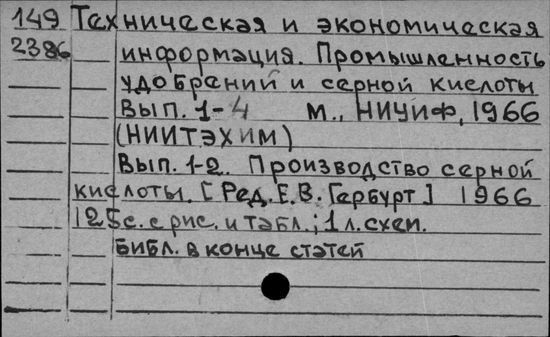 149 Техническая и экономическая
2386 информация. Промышленность
удобрений и серной кислоты
Вып. 1-4 М., НИУИФ, 1966
(НИИТЭХИМ)
Вып. 1-2. Производство серной
кислоты. [Ред. Е.В. Гербурт] 1966
125 с. с рис. и табл.; 1 л. схем.
Библ. в конце статей